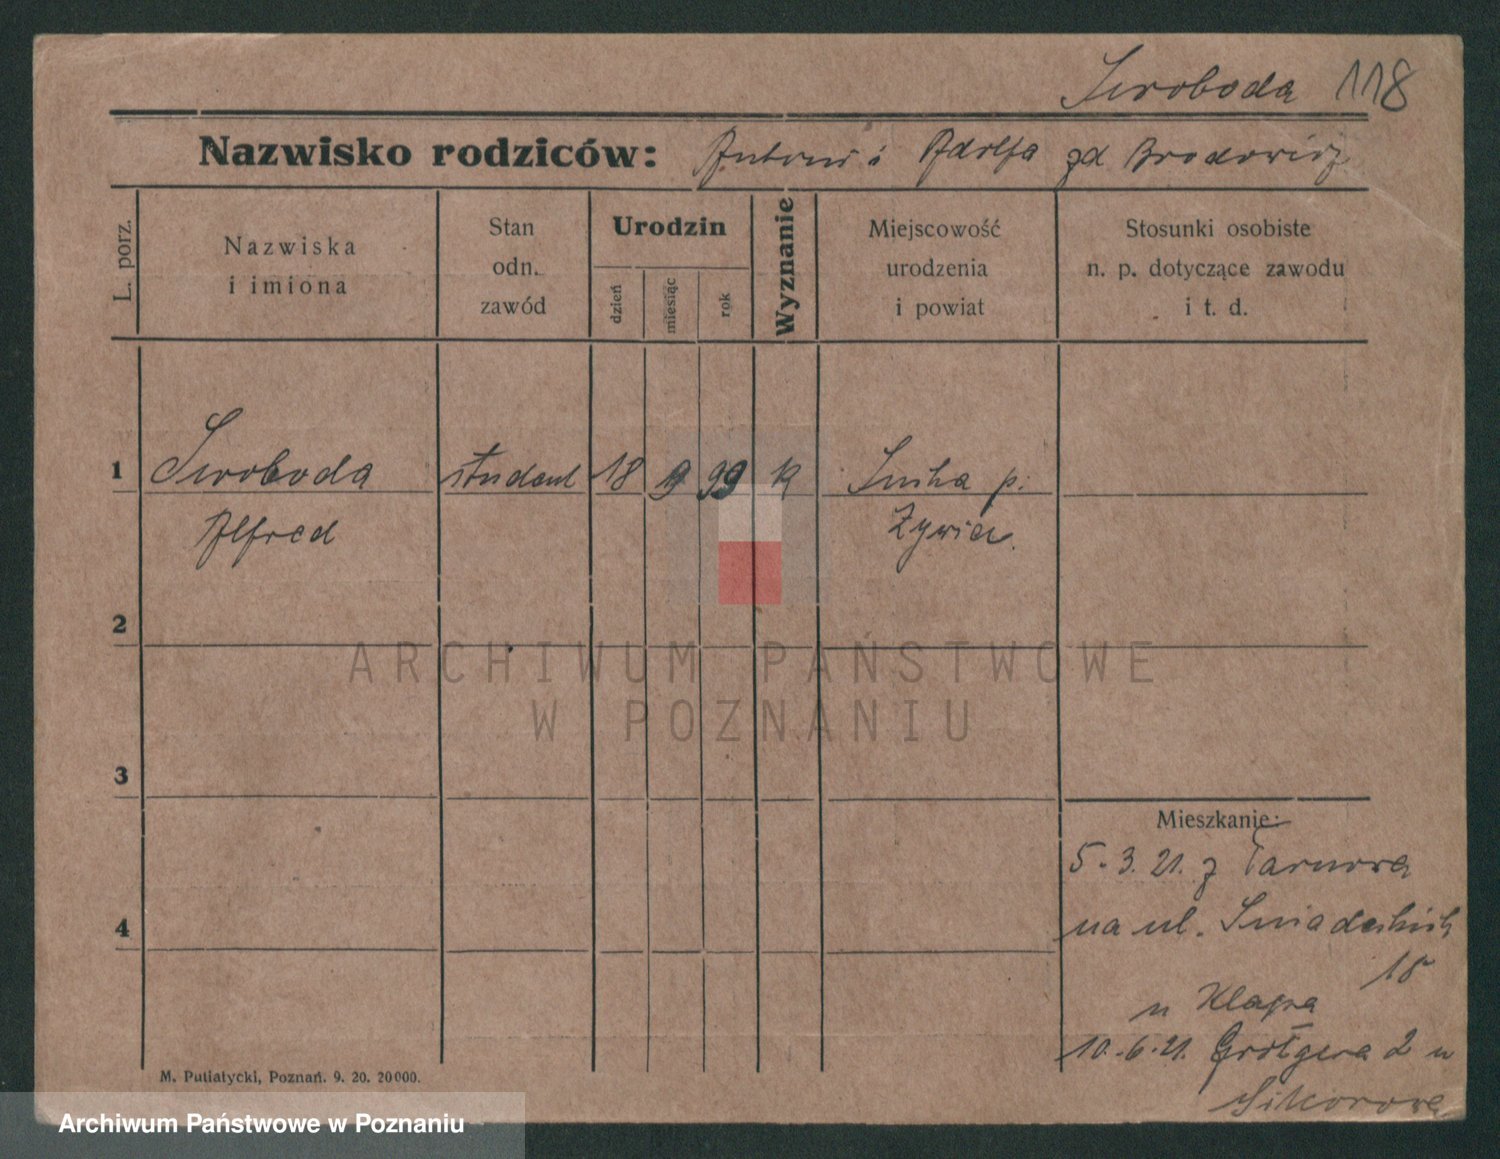 Swoboda 118
Nazwisko rodziców: Antoni i Adolfa zd Brodowicz
L. porz.
Nazwiska
i imiona
Stan
odn.
zawód
Urodzin
dzień
miesiąc
rok
Wyznanie
Miejscowość
urodzenia
i powiat
Stosunki osobiste
n. p. dotyczące zawodu
i t. d.
1 Swoboda student 18 9 99 k Sucha p.
Alfred Żywiec.
2
ARCHIWUM PAŃSTWOWE
W POZNANIU
3
Mieszkanie:
5.3.21. z Tarnowa
4
na ul. Śniadeckich
18
u Klapa
10.6.21. Grotgera 2 u
Sikorowa
M. Putiatycki, Poznań. 9. 20. 20000.
Archiwum Państwowe w Poznaniu